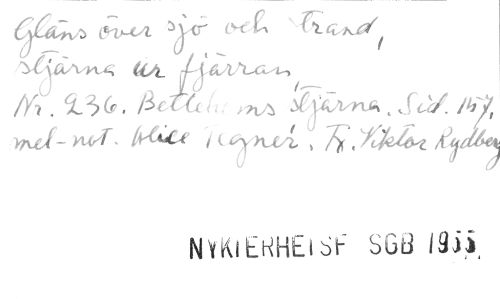 Gläns över sjö och strand,
stjärna ur fjärran,
Nr. 236. Betlehems stjärna. Sid. 157,
mel-not. Alice Tegnér. Tx. Viktor Rydberg
NYKTERHETSF SGB 1955